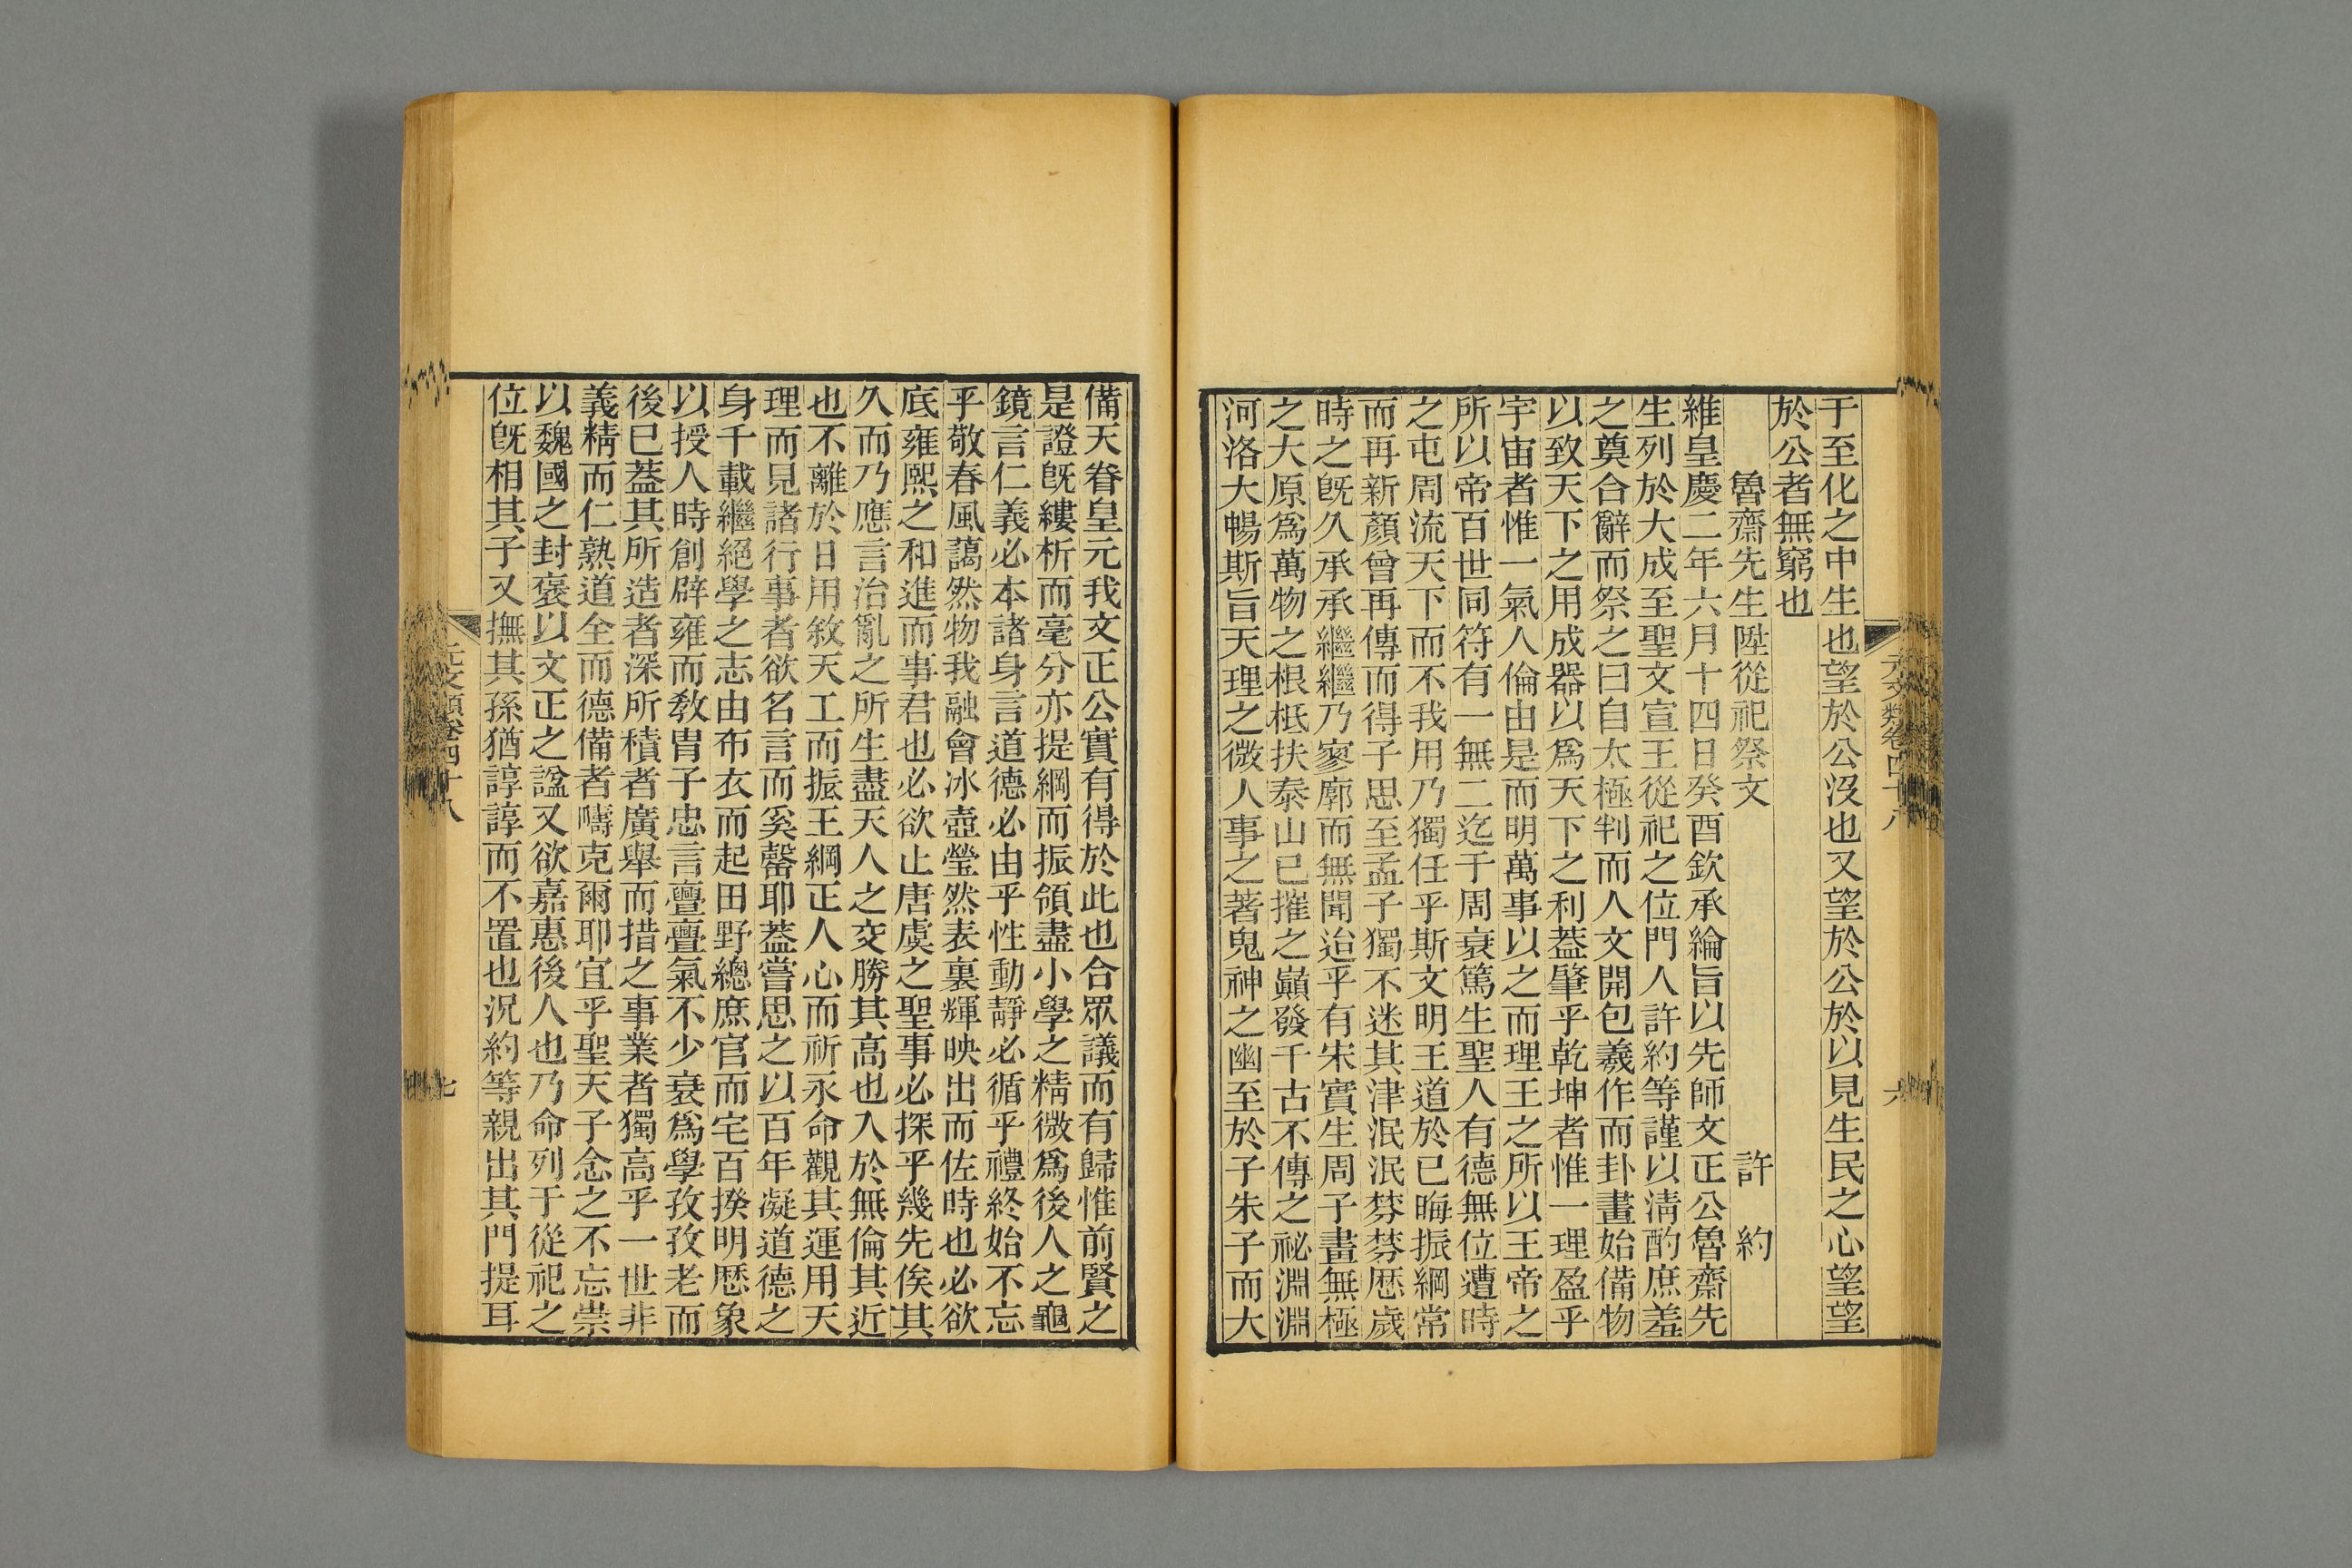 于至化之中生也望於公沒也又望於公於以見生民之心望望
於公者無窮也
魯齋先生陞從祀祭文 許約
維皇慶二年六月十四日癸酉欽承綸旨以先師文正公魯齋先
生列於大成至聖文宣王從祀之位門人許約等謹以清酌庶羞
之奠合辭而祭之曰自太極判而人文開包羲作而卦畫始備物
以致天下之用成器以爲天下之利蓋肇乎乾坤者惟一理盈乎
宇宙者惟一氣人倫由是而明萬事以之而理王之所以王帝之
所以帝百世同符有一無二迄于周衰篤生聖人有德無位遭時
之屯周流天下而不我用乃獨任乎斯文明王道於已晦振綱常
而再新顏曾再傳而得子思至孟子獨不迷其津泯泯棼棼歷歲
時之旣久承承繼繼乃寥廓而無聞迨乎有宋實生周子畫無極
之大原爲萬物之根柢扶泰山已摧之巔發千古不傳之祕淵淵
河洛大暢斯旨天理之微人事之著鬼神之幽至於子朱子而大
元文類卷四十八 六
備天眷皇元我文正公實有得於此也合眾議而有歸惟前賢之
是證旣縷析而毫分亦提綱而振領盡小學之精微爲後人之龜
鏡言仁義必本諸身言道德必由乎性動靜必循乎禮終始不忘
乎敬春風藹然物我融會冰壺瑩然表裏輝映出而佐時也必欲
底雍熙之和進而事君也必欲止唐虞之聖事必探乎幾先俟其
久而乃應言治亂之所生盡天人之交勝其高也入於無倫其近
也不離於日用敘天工而振王綱正人心而祈永命觀其運用天
理而見諸行事者欲名言而奚罄耶蓋嘗思之以百年凝道德之
身千載繼絕學之志由布衣而起田野總庶官而宅百揆明歷象
以授人時創辟雍而敎冑子忠言亹亹氣不少衰爲學孜孜老而
後已蓋其所造者深所積者廣舉而措之事業者獨高乎一世非
義精而仁熟道全而德備者疇克爾耶宜乎聖天子念之不忘崇
以魏國之封褒以文正之諡又欲嘉惠後人也乃命列于從祀之
位旣相其子又撫其孫猶諄諄而不置也況約等親出其門提耳
元文類卷四十八 七